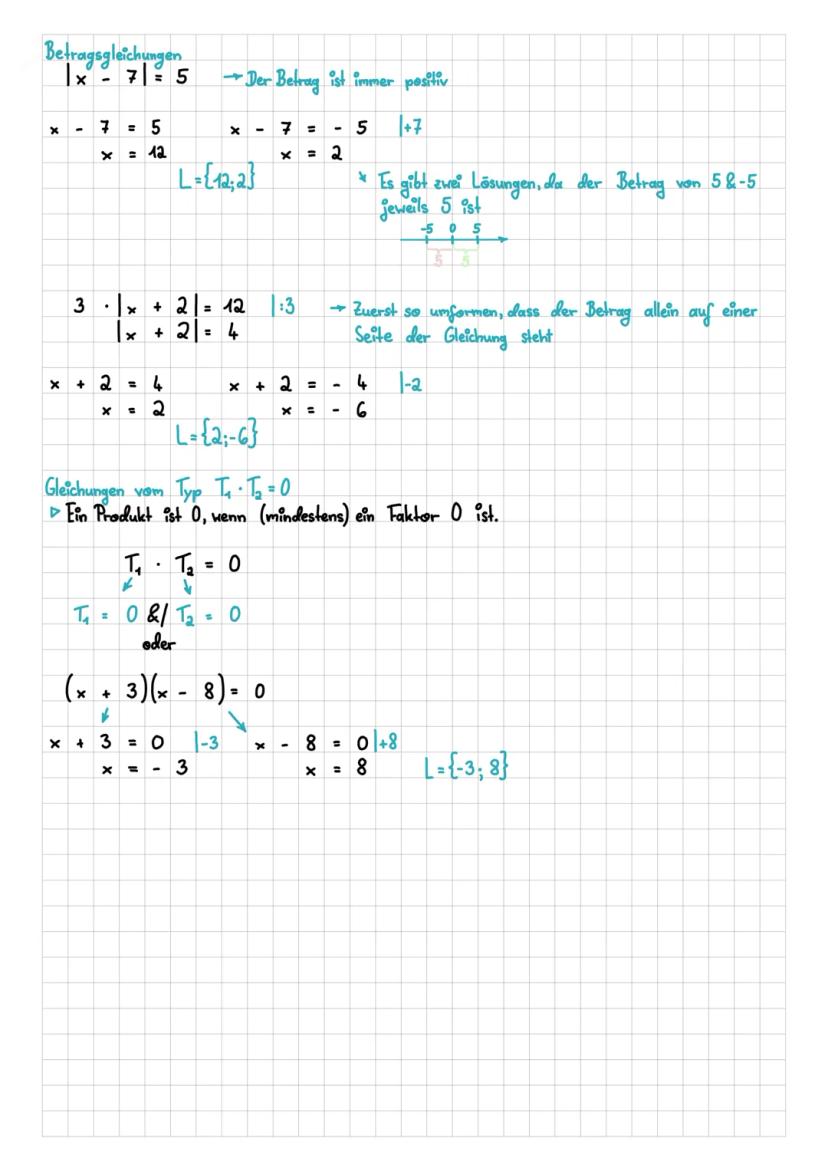 Betragsgleichungen
|x - 7| = 5 → Der Betrag ist immer positiv
x - 7 = 5 x - 7 = - 5 |+7
x = 12 x = 2
L={12;2}
* Es gibt zwei Lösungen, da der Betrag von 5 & -5
jeweils 5 ist
-5 0 5
5 5
3 · |x + 2| = 12 |:3 → Zuerst so umformen, dass der Betrag allein auf einer
|x + 2| = 4 Seite der Gleichung steht
x + 2 = 4 x + 2 = - 4 |-2
x = 2 x = - 6
L={2;-6}
Gleichungen vom Typ T₁ · T₂ = 0
▷ Ein Produkt ist 0, wenn (mindestens) ein Faktor 0 ist.
T₁ · T₂ = 0
T₁ = 0 &/ T₂ = 0
oder
(x + 3)(x - 8) = 0
x + 3 = 0 |-3 x - 8 = 0 |+8
x = - 3 x = 8 L={-3; 8}